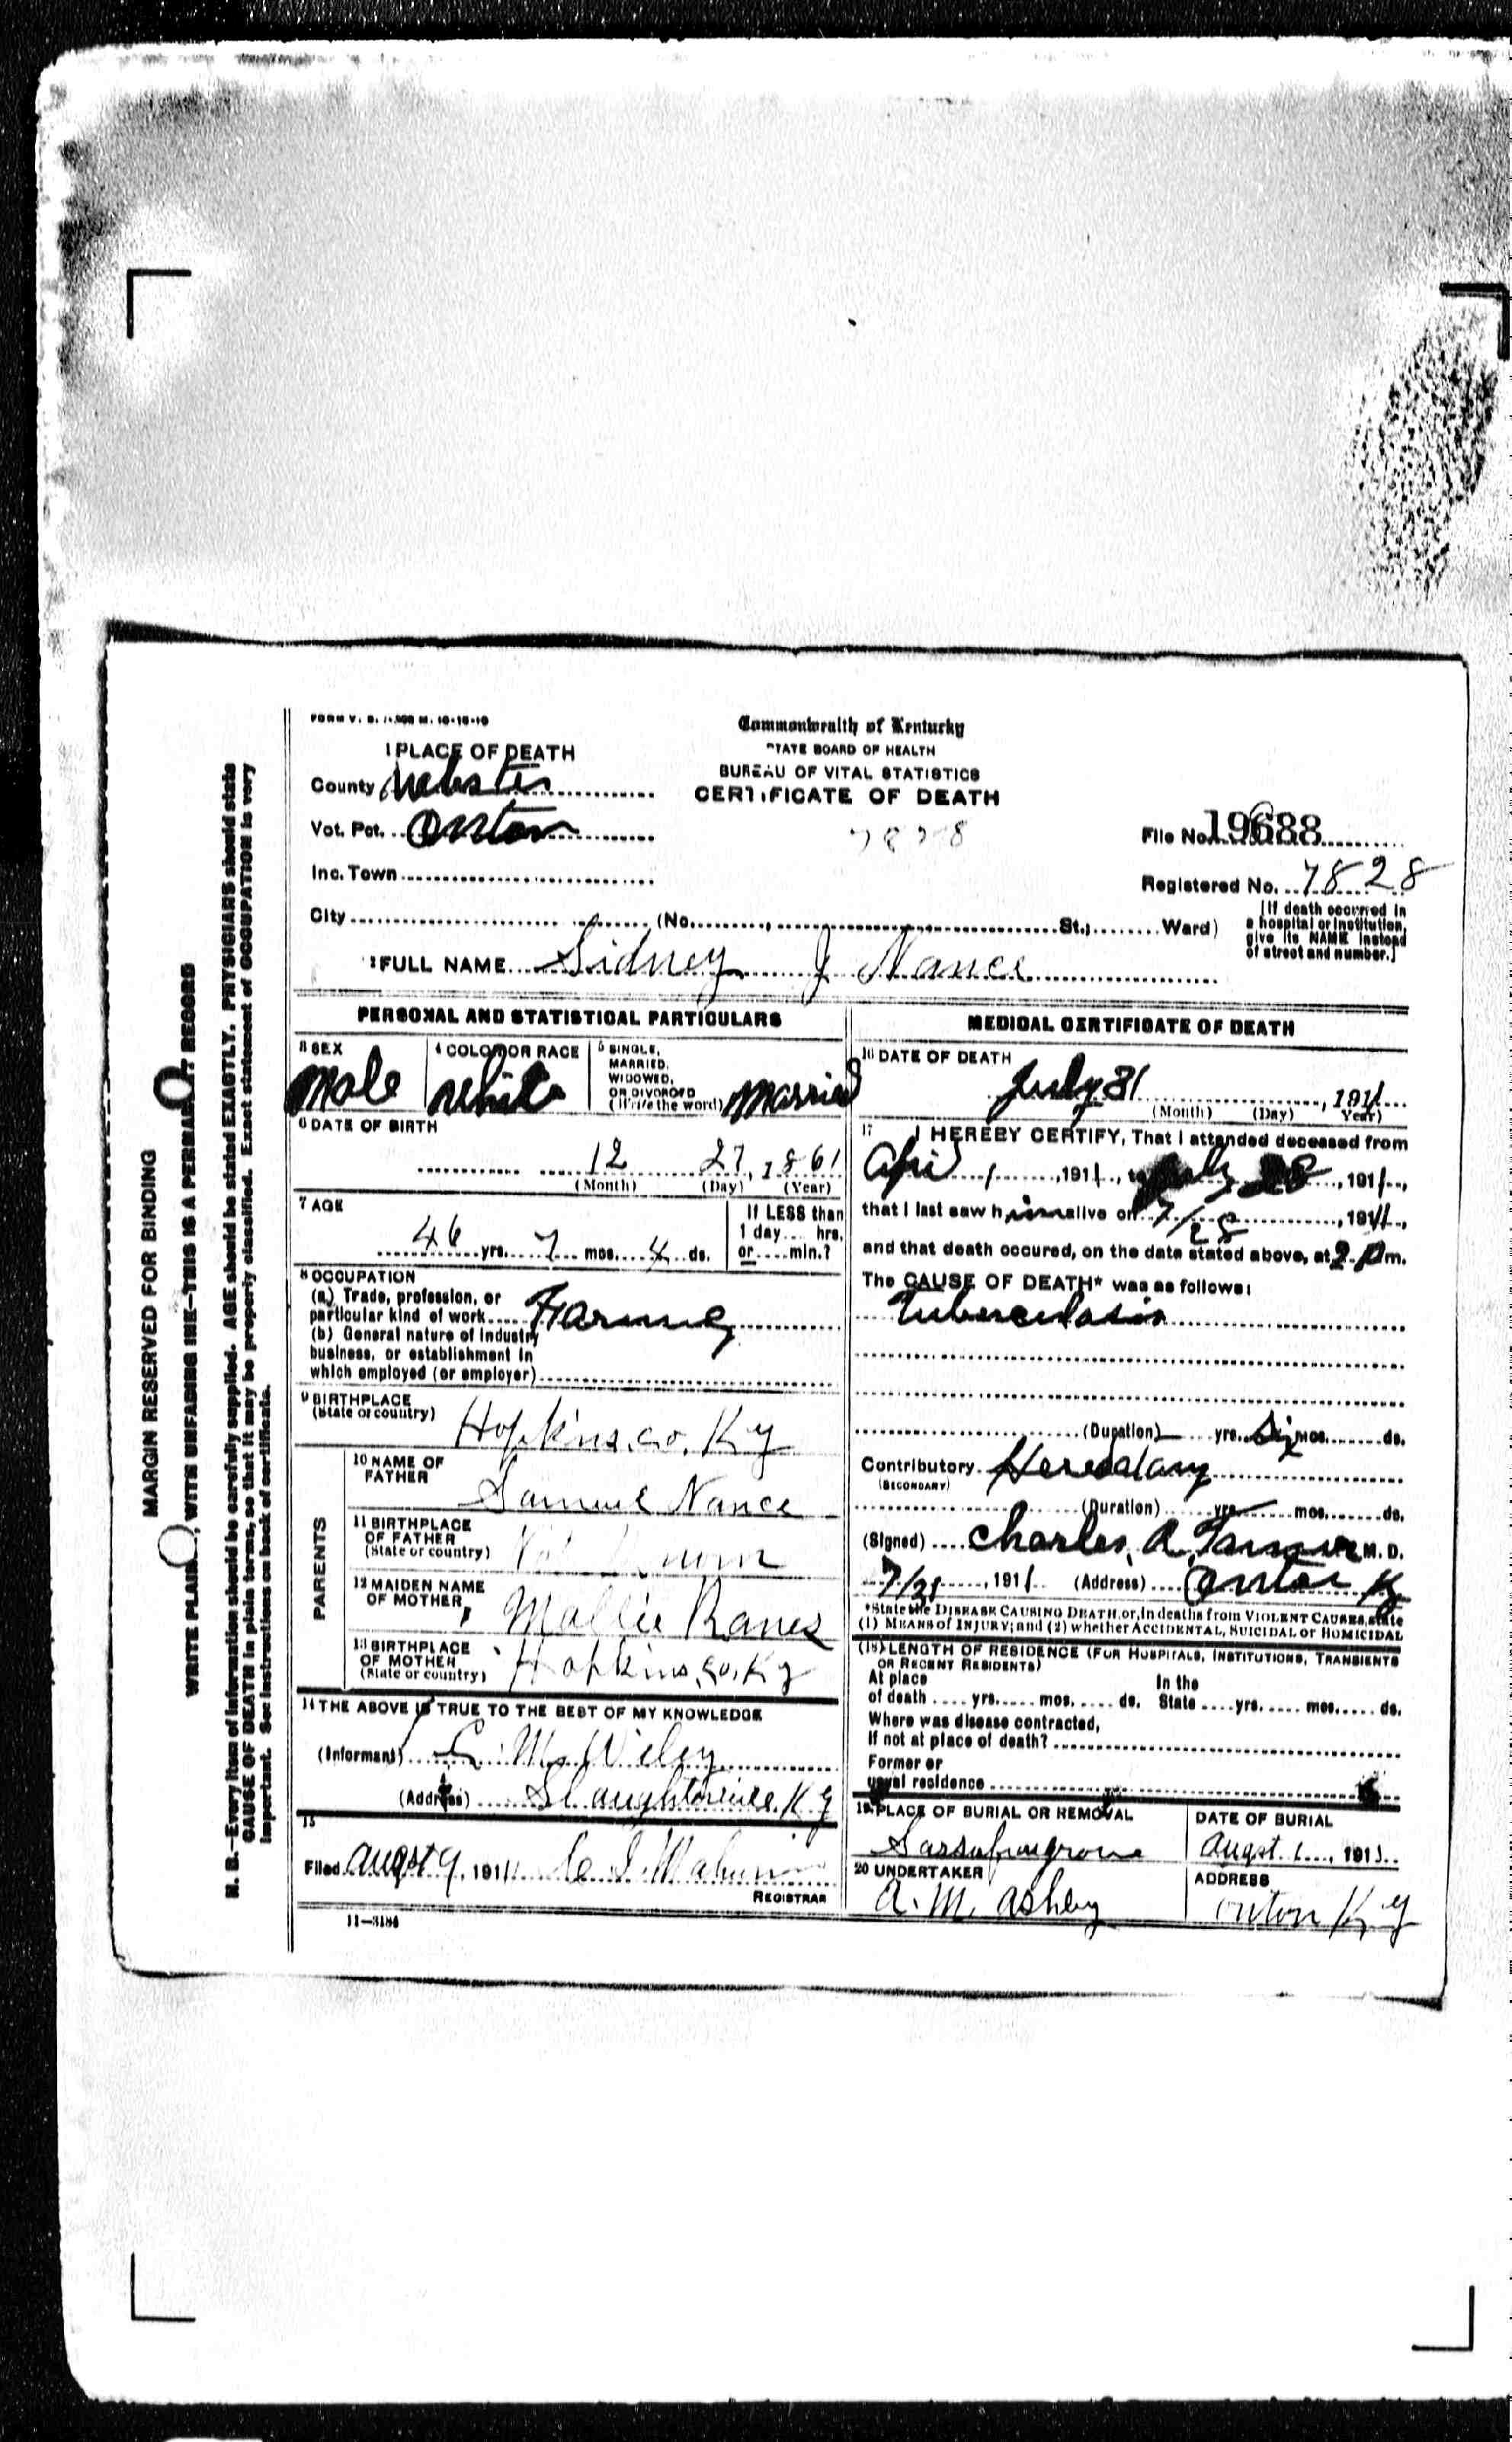 FORM V. S. 10-10-10
Commonwealth of Kentucky
STATE BOARD OF HEALTH
BUREAU OF VITAL STATISTICS
CERTIFICATE OF DEATH
1 PLACE OF DEATH
County Webster
Vot. Pct. Onton
Inc. Town
City (No. , St.; Ward)
7828
File No. 19688
Registered No. 7828
[If death occurred in
a hospital or institution,
give its NAME instead
of street and number.]
2 FULL NAME Sidney J Nance
PERSONAL AND STATISTICAL PARTICULARS
3 SEX
Male
4 COLOR OR RACE
White
5 SINGLE,
MARRIED,
WIDOWED,
OR DIVORCED
(Write the word) Married
6 DATE OF BIRTH
12 27, 1861
(Month) (Day) (Year)
7 AGE
46 yrs. 7 mos. 4 ds.
If LESS than
1 day.... hrs.
or.... min.?
8 OCCUPATION
(a) Trade, profession, or
particular kind of work
(b) General nature of industry
business, or establishment in
which employed (or employer)
9 BIRTHPLACE
(State or country) Hopkins, co, Ky
PARENTS
10 NAME OF
FATHER Samuel Nance
11 BIRTHPLACE
OF FATHER
(State or country)
12 MAIDEN NAME
OF MOTHER Mollie Ranes
13 BIRTHPLACE
OF MOTHER
(State or country) Hopkins, Co, Ky
14 THE ABOVE IS TRUE TO THE BEST OF MY KNOWLEDGE
(Informant) M Wiley
(Address)
15
Filed August 9, 1911
REGISTRAR
11-3184
MEDICAL CERTIFICATE OF DEATH
16 DATE OF DEATH
July 31, 1911
(Month) (Day) Year)
17 I HEREBY CERTIFY, That I attended deceased from
April 1, 1911, to July 28, 1911,
that I last saw him alive on 7/28, 1911,
and that death occured, on the date stated above, at 2 Pm.
The CAUSE OF DEATH* was as follows:
Tuberculosis
(Duration) yrs. Six mos. ds.
Contributory
(SECONDARY)
(Duration) yrs. mos. ds.
(Signed) Charles A. M. D.
7/31, 1911 (Address) Onton Ky
*State the DISEASE CAUSING DEATH, or, in deaths from VIOLENT CAUSES, state
(1) MEANS of INJURY; and (2) whether ACCIDENTAL, SUICIDAL or HOMICIDAL
(18) LENGTH OF RESIDENCE (FOR HOSPITALS, INSTITUTIONS, TRANSIENTS
OR RECENT RESIDENTS)
At place
of death .... yrs. .... mos. .... ds.
In the
State .... yrs. .... mos. .... ds.
Where was disease contracted,
If not at place of death?
Former or
usual residence
19 PLACE OF BURIAL OR REMOVAL
DATE OF BURIAL
August 1, 1911
20 UNDERTAKER
A. M. Ashby
ADDRESS
Onton Ky
MARGIN RESERVED FOR BINDING
WRITE PLAINLY, WITH UNFADING INK—THIS IS A PERMANENT RECORD
N. B.—Every item of information should be carefully supplied. AGE should be stated EXACTLY. PHYSICIANS should state
CAUSE OF DEATH in plain terms, so that it may be properly classified. Exact statement of OCCUPATION is very
important. See instructions on back of certificate.